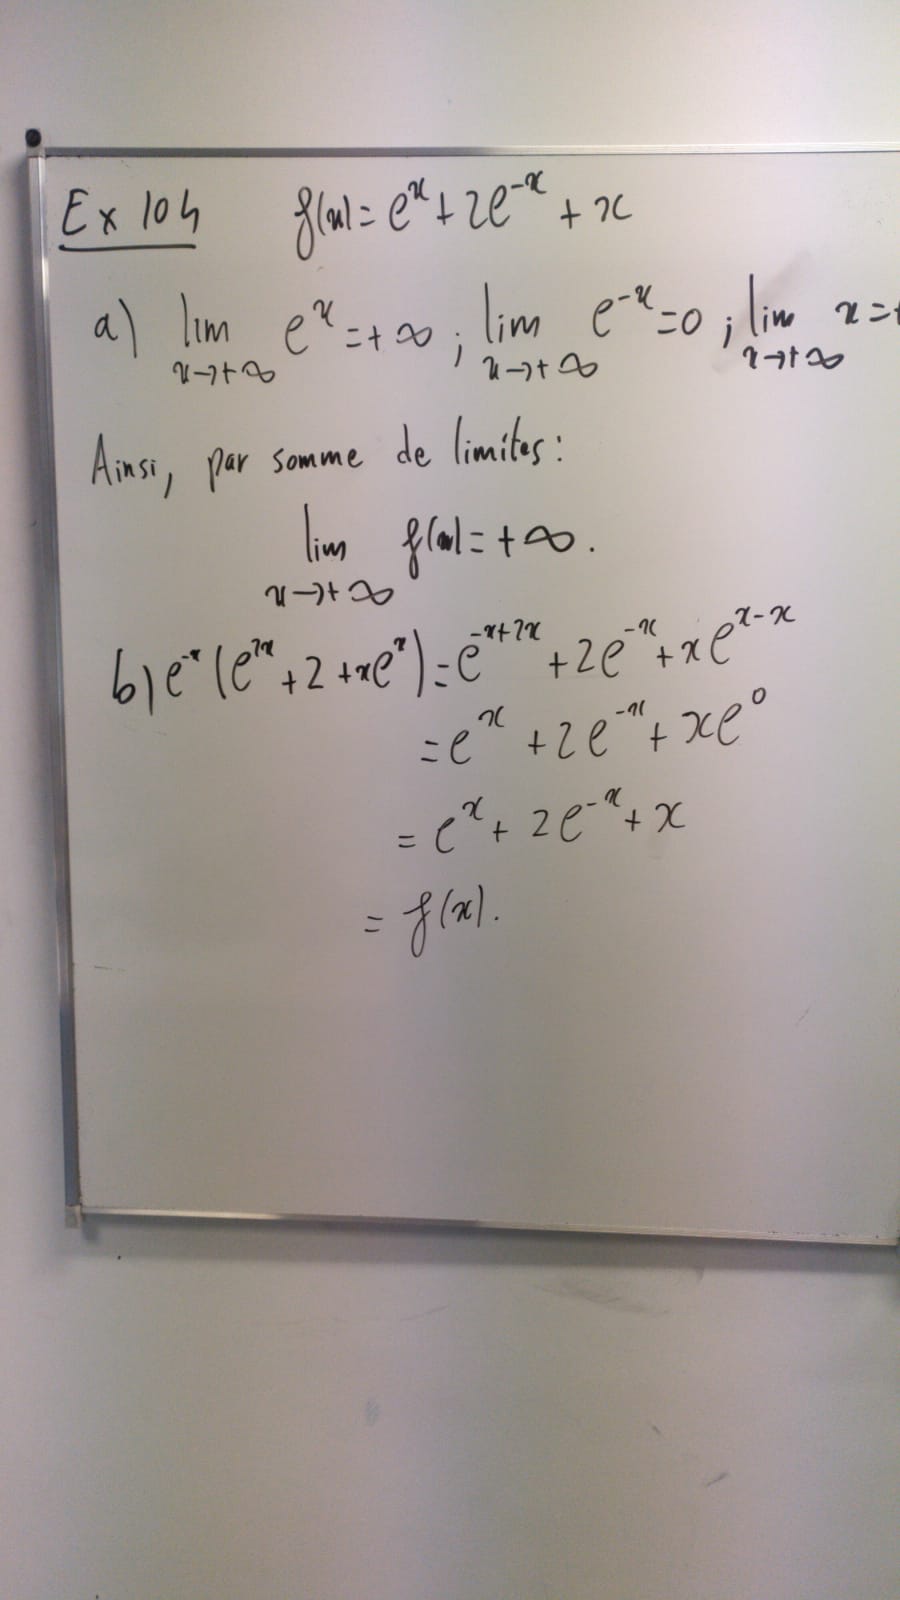 Ex 104 f(x) = e^x + 2e^-x + x
a) lim x→+∞ e^x = +∞ ; lim x→+∞ e^-x = 0 ; lim x→+∞ x = +
Ainsi, par somme de limites :
lim x→+∞ f(x) = +∞.
b) e^-x (e^2x + 2 + xe^x) = e^-x+2x + 2e^-x + xe^x-x
= e^x + 2e^-x + xe^0
= e^x + 2e^-x + x
= f(x).